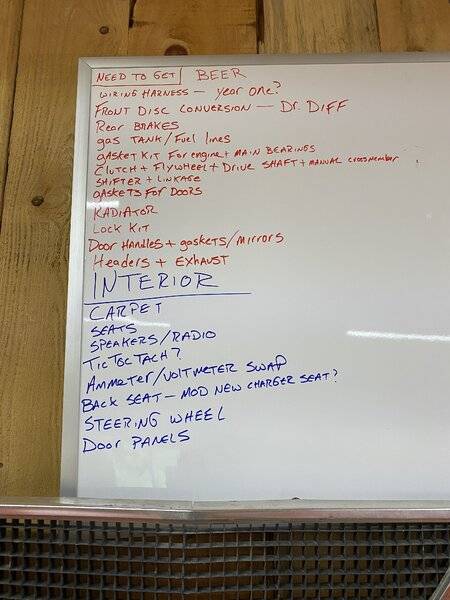 NEED TO GET BEER
WIRING HARNESS — year one?
FRONT DISC CONVERSION — Dr. DIFF
Rear BRAKES
gas TANK/Fuel lines
gasket Kit For engine + MAIN BEARINGS
Clutch + Flywheel + Drive SHAFT + MANUAL crossmember
SHIFTER + LINKAGE
gaskets For DOORS
RADIATOR
Lock Kit
Door Handles + gaskets/mirrors
Headers + EXHAUST
INTERIOR
CARPET
SEATS
SPEAKERS/RADIO
TicTocTach?
Ammeter/voltmeter SWAP
BACK SEAT — MOD NEW CHARGER SEAT?
STEERING WHEEL
Door PANELS